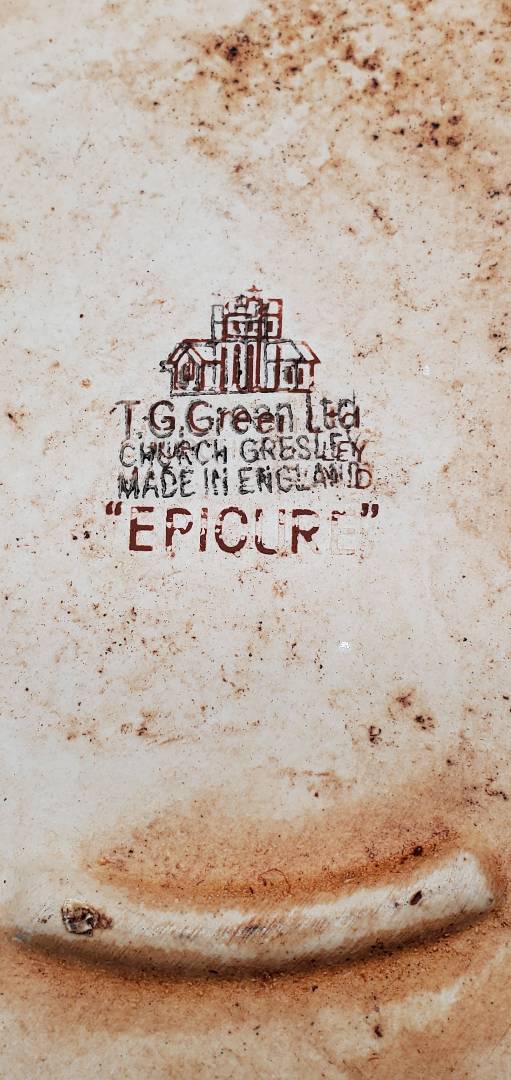 T.G.Green Ltd
CHURCH GRESLEY
MADE IN ENGLAND
"EPICURE"